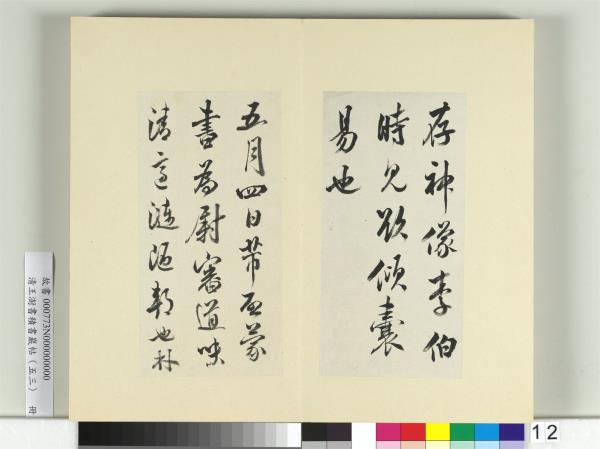 存神像李伯
時見欲傾囊
易也
五月四日芾頁蒙
書為尉審道味
清適漣漪郡也林
故書 000773N000000000
清王澍書積書巖帖(五三) 冊
12